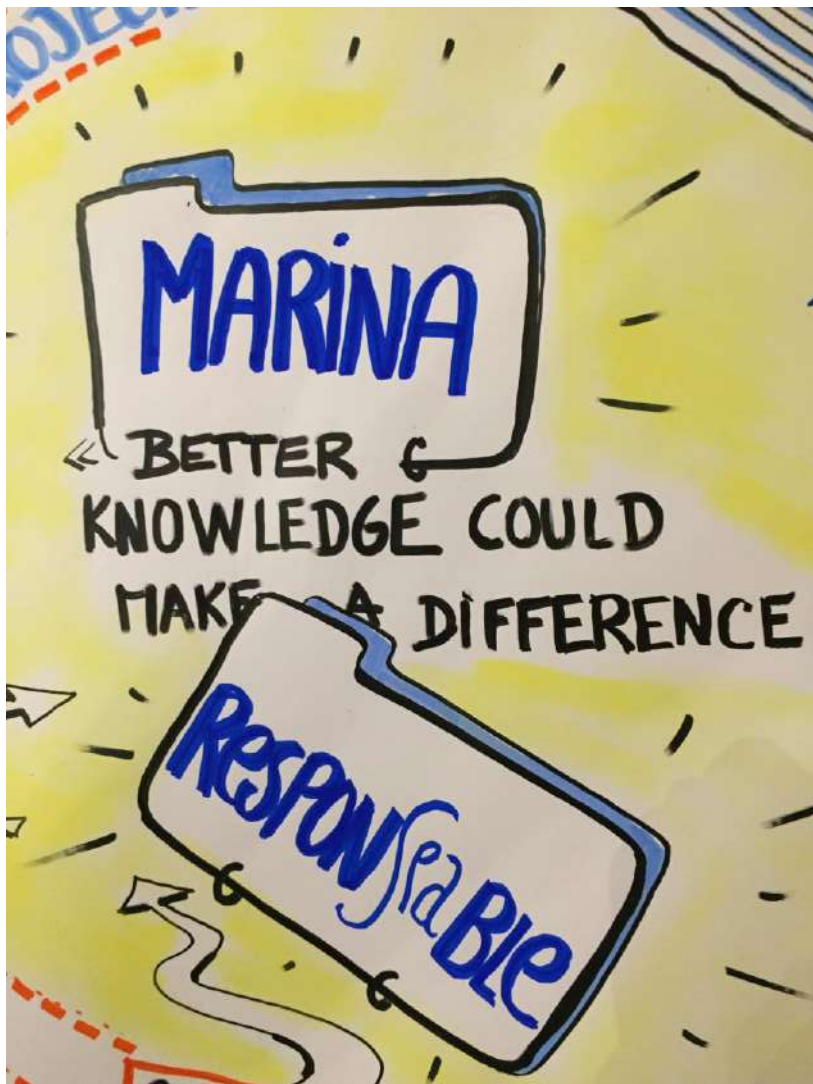 MARiNA
« BETTER
KNOWLEDGE COULD
MAKE A DiFFERENCE
ResPONseaBLe